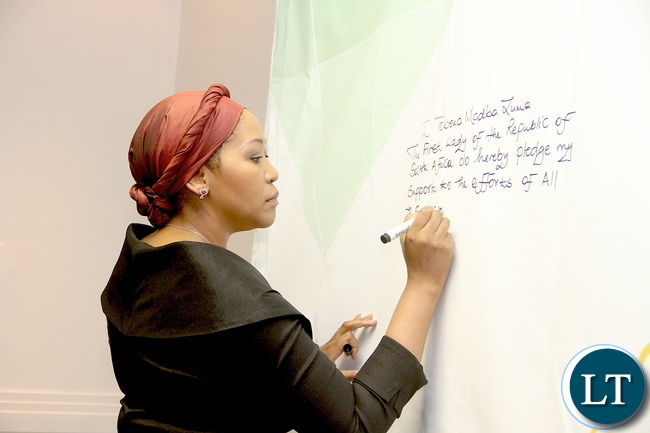 I Tobeka Madiba Zuma
The First Lady of the Republic of
South Africa do hereby pledge my
Support to the efforts of All
LT